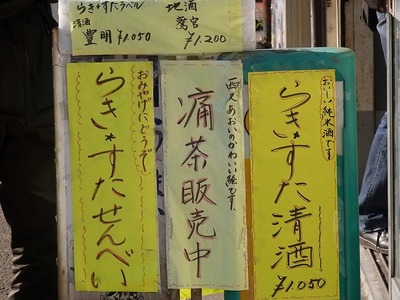 らき☆すたラベル
清酒
豊明 ¥1.050
地酒
鷲宮
¥1.200
おいしい純米酒です
らき☆すた清酒
¥1.050
西又あおいのかわいい絵です。
痛茶販売中
おみやげにどうぞ
らき☆すたせんべい